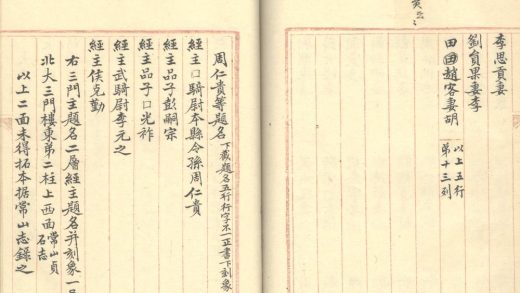 李思貢妻
劉貟果妻李
田囬趙客妻胡 以上五行
第十三列
周仁貴等題名 下截題名五行行字不一正書下刻象
經主口騎尉本縣令孫周仁貴
經主品子彭嗣宗
經主品子口光祚
經主武騎尉李元之
經主侯克勤
右三門主題名二層經主題名并刻象一
北大三門樓東第二柱上西面 常山貞
石志
以上二面未得拓本据常山志錄之